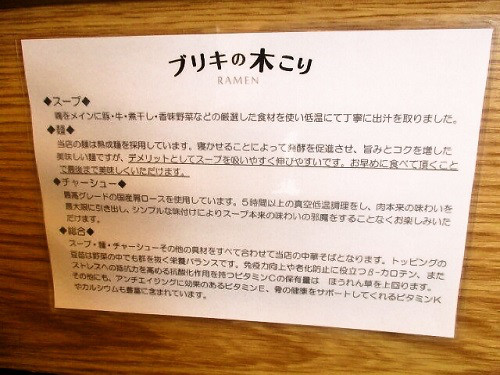 ブリキの木こり
RAMEN
◆スープ◆
鶏をメインに豚・牛・煮干し・香味野菜などの厳選した食材を使い低温にて丁寧に出汁を取りました。
◆麺◆
当店の麺は熟成麺を採用しています。寝かせることによって発酵を促進させ、旨みとコクを増した
美味しい麺ですが、デメリットとしてスープを吸いやすく伸びやすいです。お早めに食べて頂くこと
で最後まで美味しくいただけます。
◆チャーシュー◆
最高グレードの国産肩ロースを使用しています。５時間以上の真空低温調理をし、肉本来の味わいを
最大限に引き出し、シンプルな味付けによりスープ本来の味わいの邪魔をすることなくお楽しみいた
だけます。
◆総合◆
スープ・麺・チャーシューその他の具材をすべて合わせて当店の中華そばとなります。トッピングの
豆苗は野菜の中でも群を抜く栄養バランスです。免疫力向上や老化防止に役立つβ-カロテン、また
ストレスへの抵抗力を高める抗酸化作用を持つビタミンCの保有量は ほうれん草を上回ります。
その他にも、アンチエイジングに効果のあるビタミンE、骨の健康をサポートしてくれるビタミンK
やカルシウムも豊富に含まれています。